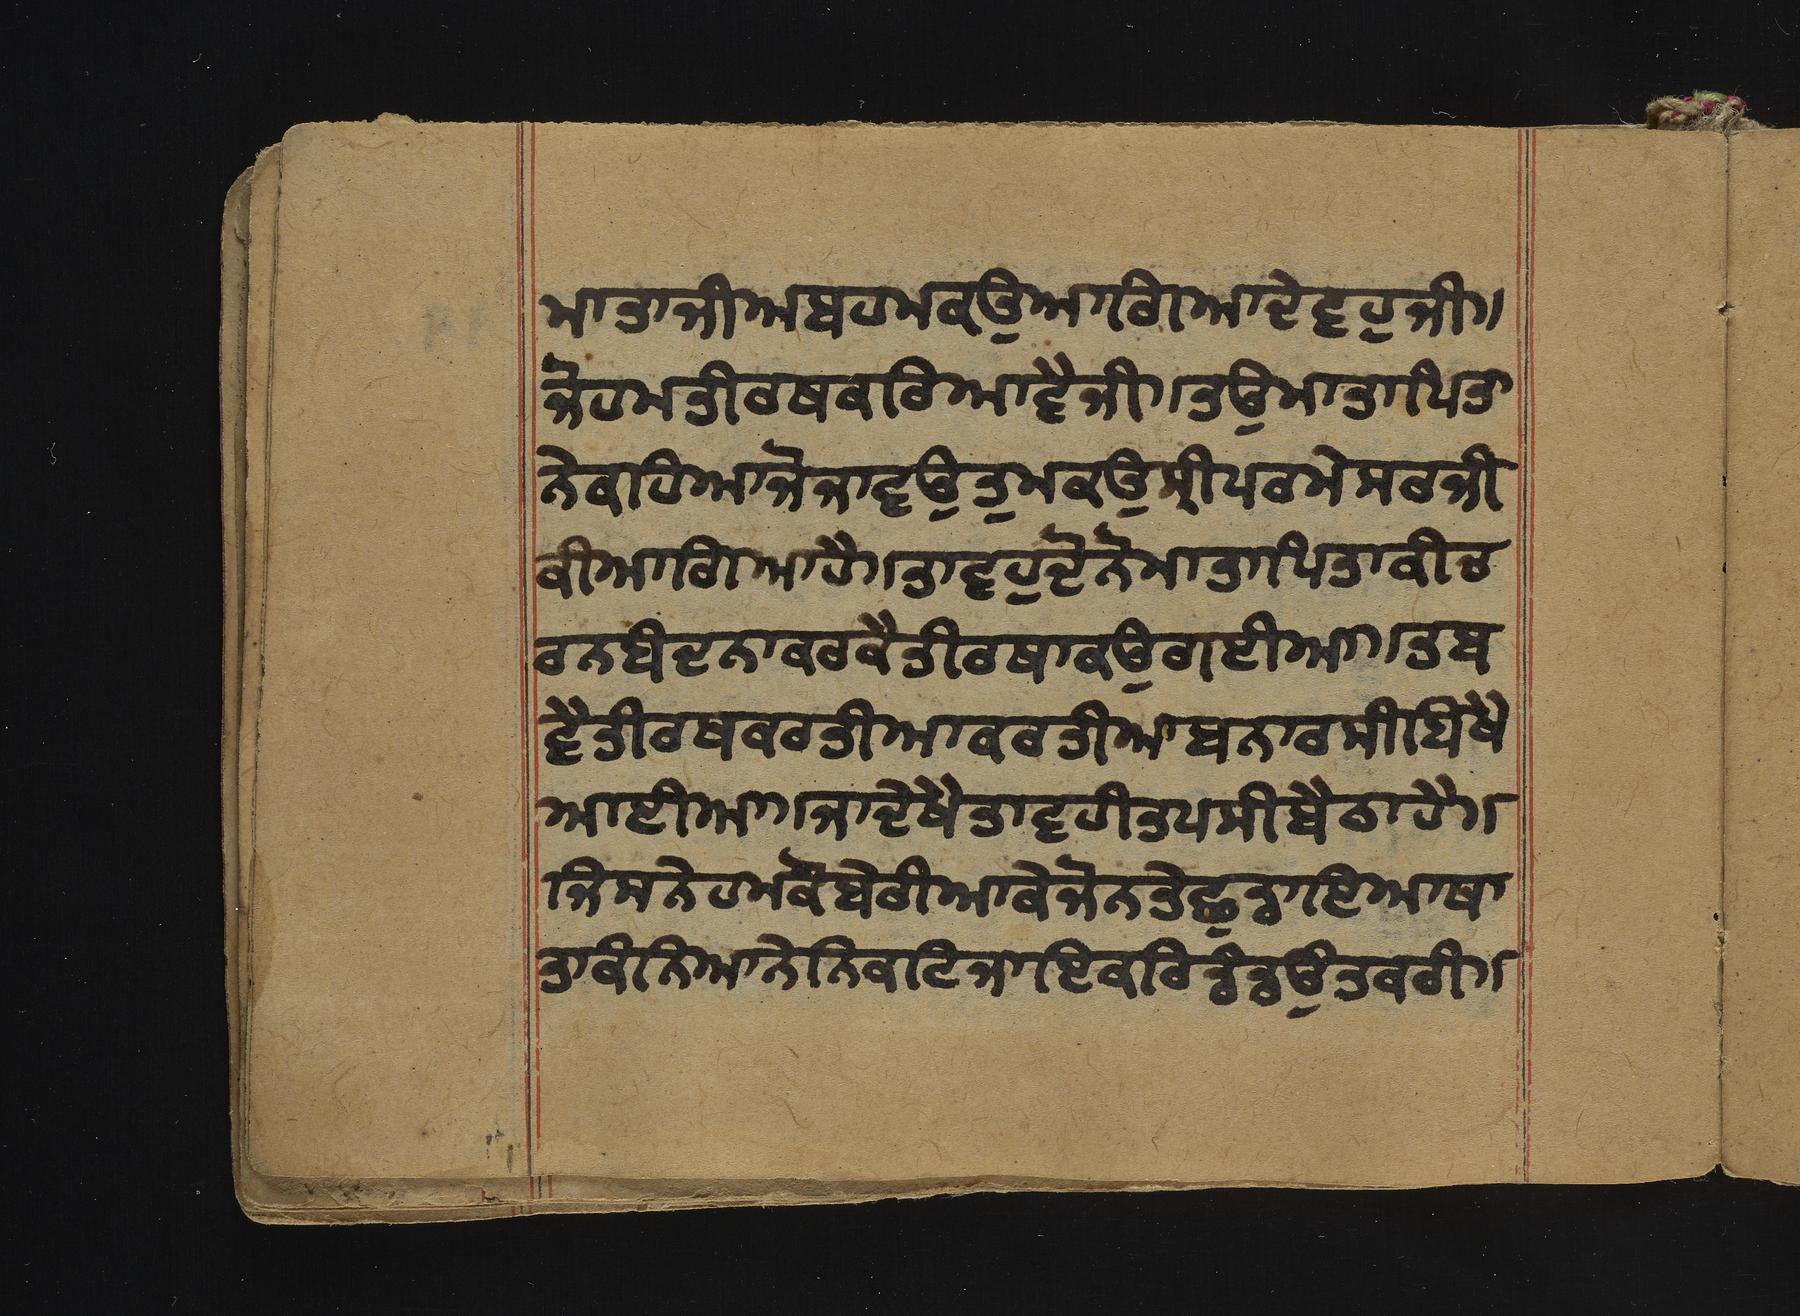 ਮਾਤਾਜੀਅਬਹਮਕਉਆਗਿਆਦੇਵਹੁਜੀ॥
ਜੋਹਮਤੀਰਥਕਰਿਆਵੈਜੀ॥ਤਉਮਾਤਾਪਿਤਾ
ਨੇਕਹਿਆਜੋਜਾਵਉਤੁਮਕਉਸ੍ਰੀਪਰਮੇਸਰਜੀ
ਕੀਆਗਿਆਹੈ॥ਤਾਵਹੁਦੋਨੋਮਾਤਾਪਿਤਾਕੀਚ
ਰਨਬੰਦਨਾਕਰਕੈਤੀਰਥਾਕਉਗਈਆ॥ਤਬ
ਵੈਤੀਰਥਕਰਤੀਆਕਰਤੀਆਬਨਾਰਸੀਬਿਖੈ
ਆਈਆ॥ਜਾਦੇਖੈਤਾਵਹੀਤਪਸੀਬੈਠਾਹੈ॥
ਜਿਸਨੇਹਮਕੋਬੇਟੀਆਕੇਜੋਨਤੇਛੁਡਾਇਆਥਾ
ਤਾਕੰਨਿਆਨੇਨਿਕਟਿਜਾਇਕਰਿਡੰਡਉਤਕਰੀ॥